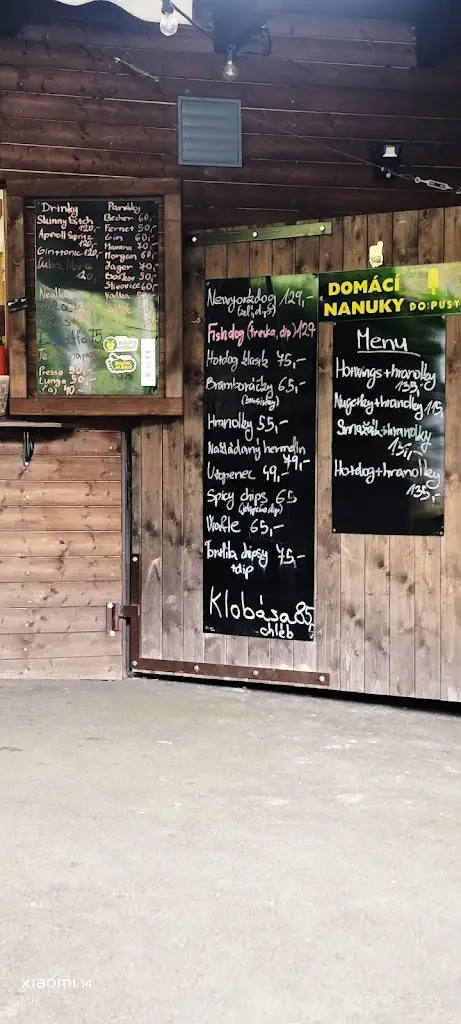 Drinky
Skinny bitch
120,-
Aperoll Spritz
120,-
Gin+tonic 120,-
Cuba libre
120,-
Presso 50,-
Lungo 50,-
Čaj 40
Panáky
Becher 60,-
Fernet 50,-
Gin 60,-
Havana 70,-
Morgan 60,-
Jager 70,-
Božkov 50,-
Slivovice 60,-
Vodka
Newyorkdog 129,-
Fishdog (treska, dip) 129
Hotdog klasik 75,-
Bramboráčky 65,-
Hranolky 55,-
Nakládaný hermelín
79,-
Utopenec 49,-
Spicy chips 65
(jalapeño dip)
Wafle 65,-
Tortilla chipsy 75,-
+dip
Klobása 85,-
chléb
DOMÁCÍ
NANUKY DO PUSY
Menu
Hotwings+hranolky
155,-
Nugetky+hranolky 115
Smažák+hranolky
151,-
Hotdog+hranolky
135,-
xiaomi 14